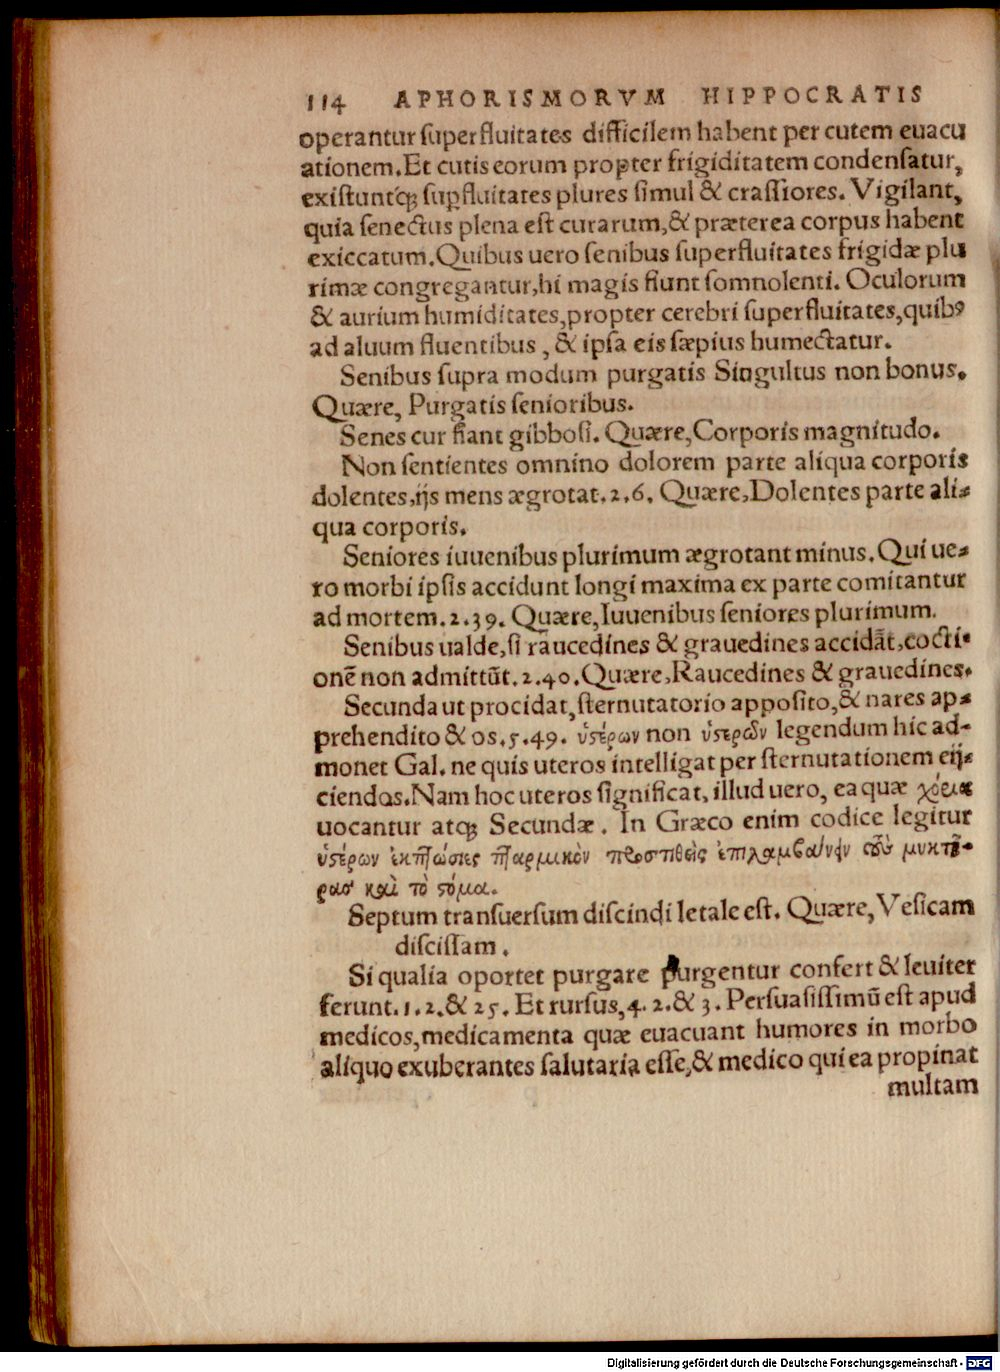 114 APHORISMORVM HIPPOCRATIS
operantur ſuperfluitates difficilem habent per cutem euacu
ationem. Et cutis eorum propter frigiditatem condenſatur,
exiſtuntq́ꝫ ſuꝑfluitates plures ſimul & craſſiores. Vigilant,
quia ſenectus plena eſt curarum, & præterea corpus habent
exiccatum. Quibus uero ſenibus ſuperfluitates frigidæ plu
rimæ congregantur, hi magis fiunt ſomnolenti. Oculorum
& aurium humiditates, propter cerebri ſuperfluitates, quibꝰ
ad aluum fluentibus, & ipſa eis ſæpius humectatur.
Senibus ſupra modum purgatis Singultus non bonus.
Quære, Purgatis ſenioribus.
Senes cur fiant gibboſi. Quære, Corporis magnitudo.
Non ſentientes omnino dolorem parte aliqua corporis
dolentes, ijs mens ægrotat. 2. 6. Quære, Dolentes parte ali-
qua corporis.
Seniores iuuenibus plurimum ægrotant minus. Qui ue-
ro morbi ipſis accidunt longi maxima ex parte comitantur
ad mortem. 2. 39. Quære, Iuuenibus ſeniores plurimum.
Senibus ualde, ſi raucedines & grauedines accidãt, cocti-
onẽ non admittũt. 2. 40. Quære, Raucedines & grauedines.
Secunda ut procidat, ſternutatorio appoſito, & nares ap-
prehendito & os. 5. 49. ὑστέρων non ὑστερῶν legendum hic ad-
monet Gal. ne quis uteros intelligat per ſternutationem eij-
ciendos. Nam hoc uteros ſignificat, illud uero, ea quæ χόρια
uocantur atqꝫ Secundæ. In Græco enim codice legitur
ὑστέρων ἐκπτώσιες πταρμικὸν προστιθεὶς ἐπιλαμβάνειν τοὺς μυκτῆ-
ρας καὶ τὸ στόμα.
Septum tranſuerſum diſcindi letale eſt. Quære, Veſicam
diſciſſam.
Si qualia oportet purgare purgentur confert & leuiter
ferunt. 1. 2. & 25. Et rurſus, 4. 2. & 3. Perſuaſiſſimũ eſt apud
medicos, medicamenta quæ euacuant humores in morbo
aliquo exuberantes ſalutaria eſſe, & medico qui ea propinat
multam
Digitalisierung gefördert durch die Deutsche Forschungsgemeinschaft - DFG